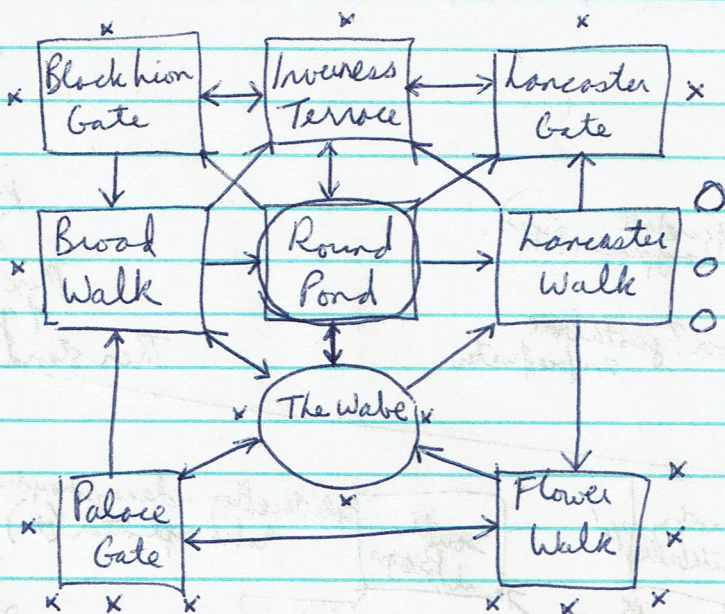 Black Lion
Gate
Inverness
Terrace
Lancaster
Gate
Broad
Walk
Round
Pond
Lancaster
Walk
The Wabe
Palace
Gate
Flower
Walk